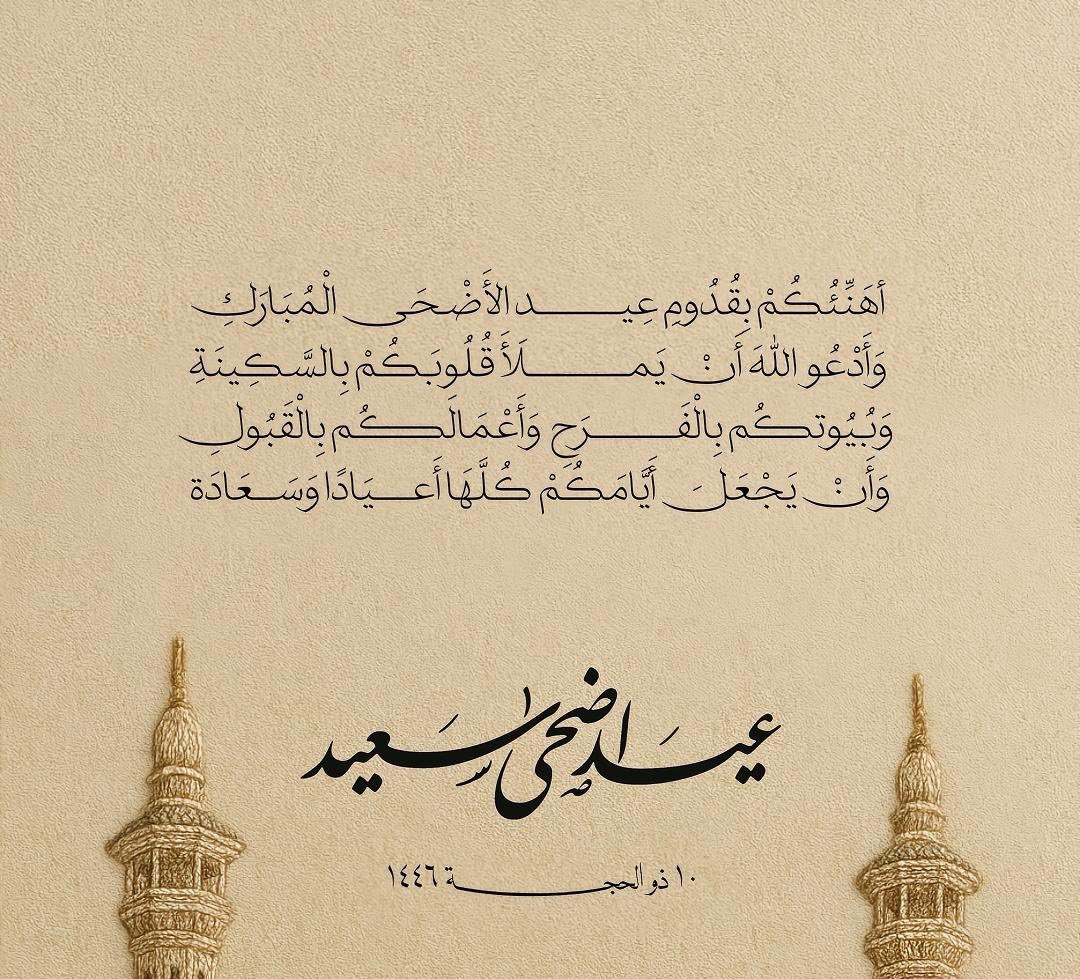 أهَنِّئُكُمْ بِقُدُومِ عِيـــــد الأَضْحَى الْمُبَارَكِ
وَأَدْعُو اللهَ أَنْ يَمـــــلَأَ قُلُوبَكُمْ بِالسَّكِينَةِ
وَبُيُوتكُم بِالْفَـــــرَحِ وَأَعْمَالَكُم بِالْقَبُولِ
وَأَنْ يَجْعَلَ أَيَّامَكُمْ كُلَّهَا أَعـــيَادًا وَسَـعَادَة
عيد اضحى سعيد
١٠ ذو الحجـــــة ١٤٤٦